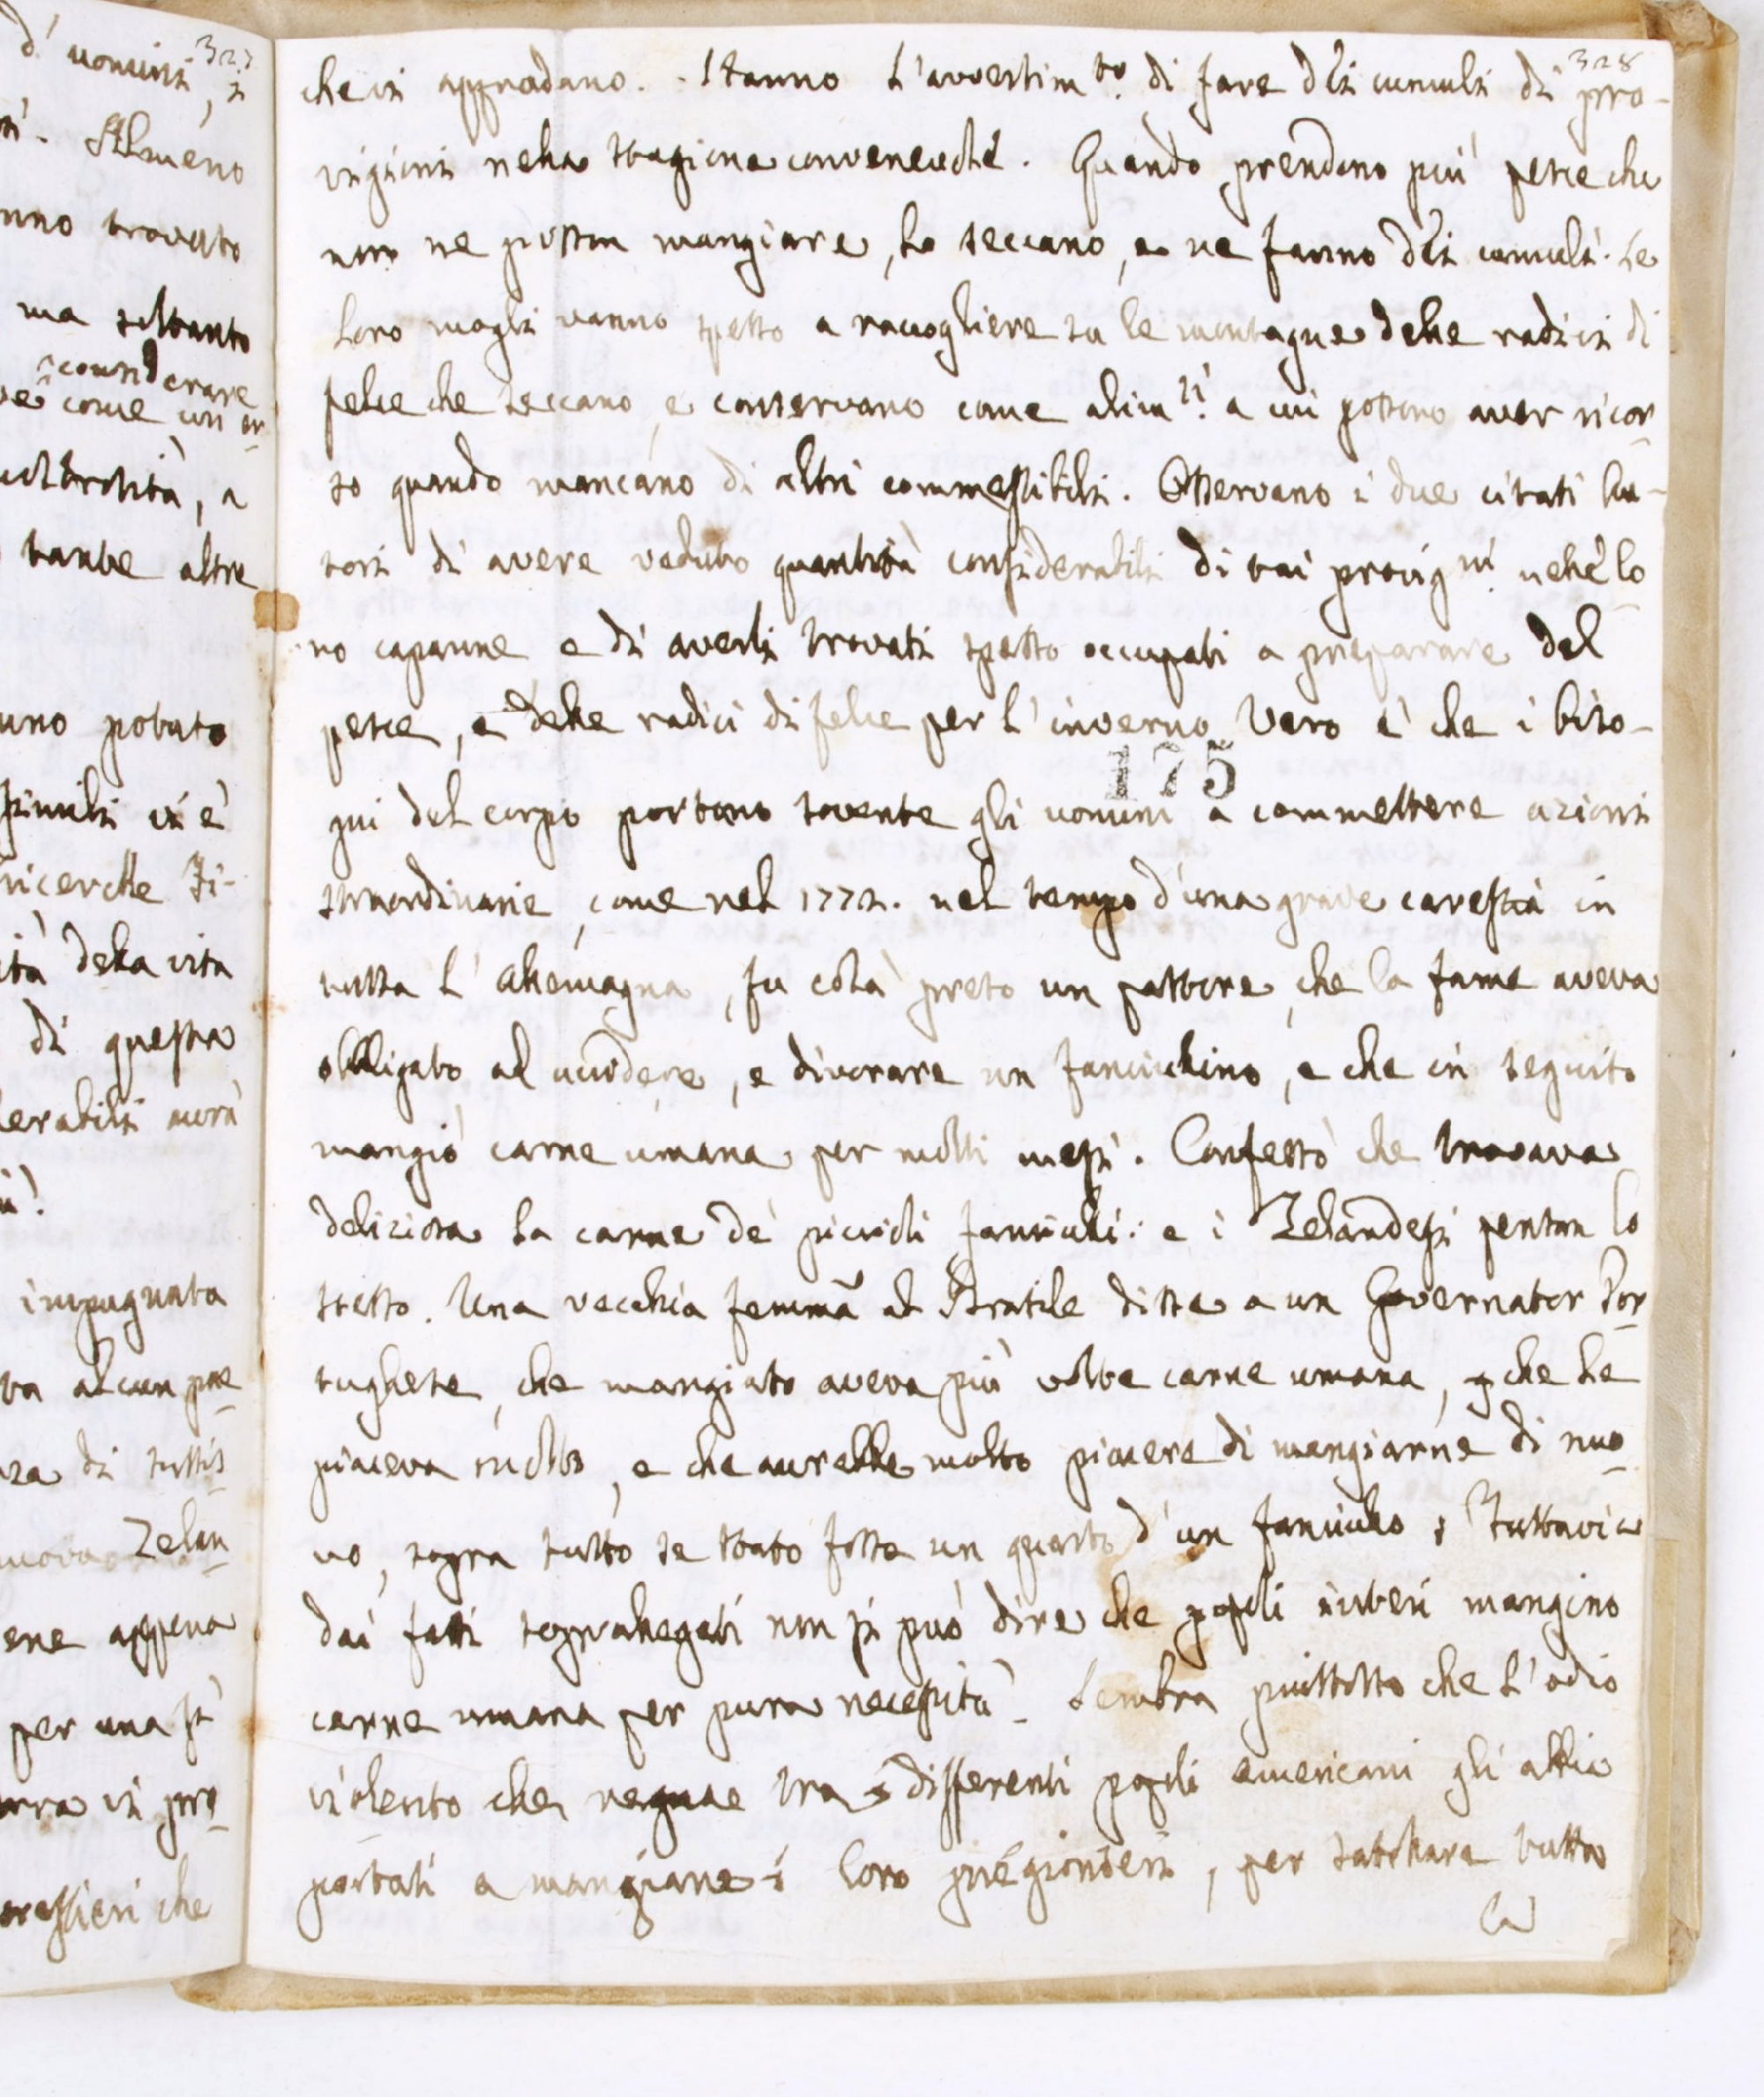 327
d'uomini, i
Almeno
nno trovato
ma soltanto
considerare
come un or-
, a
tante altre
uno potuto
simili vi è
ricerche Fi-
ità della vita
di questa
erabili avrà
impugnata
va alcun pne
za di tutti i
nuova Zelan-
ene appena
per una
rra vi pro-
ressieri che
328
che vi approdano. Hanno l'avvertim.to di fare d'li cumuli di pro-
vigioni nella stagione convenevole. Quando prendono più pesce che
non ne posson mangiare, lo seccano, e ne fanno d'li cumuli. Le
loro mogli vanno spesso a raccogliere su le montagne delle radici di
felce che seccano, e conservano come alim.ti a cui possono aver ricor-
so quando mancano di altri commestibili. Osservano i due citati Au-
tori di avere veduto quantità considerabili di tai provig.ni nelle lo-
ro capanne e di averli trovati spesso occupati a preparare del
pesce, e delle radici di felce per l'inverno. Vero è che i biso-
175
gni del corpo portono sovente gli uomini a commettere azioni
straordinarie, come nel 1772. nel tempo d'una grave carestia in
tutta l'Allemagna, fu colà preso un pastore, che la fame aveva
obbligato ad uccidere, e divorare un fanciullino, e che in seguito
mangiò carne umana per molti mesi. Confessò che trovava
deliziosa la carne de' piccioli fanciulli: e i Zelandesi pensan lo
stesso. Una vecchia femma al Brasile disse a un Governator Por-
tughese, che mangiato aveva più volte carne umana, che le
piaceva molto, e che avrebbe molto piacere di mangiarne di nuo-
vo, sopra tutto se stato fosse un quarto d'un fanciullo. Tuttavia
dai fatti sopraallegati non si può dire che popoli interi mangino
carne umana per pura necessità. Sembra piuttosto che l'odio
violento che regna tra i differenti popoli americani gli abbia
portati a mangiare i loro prigionieri, per satollare tutta
la